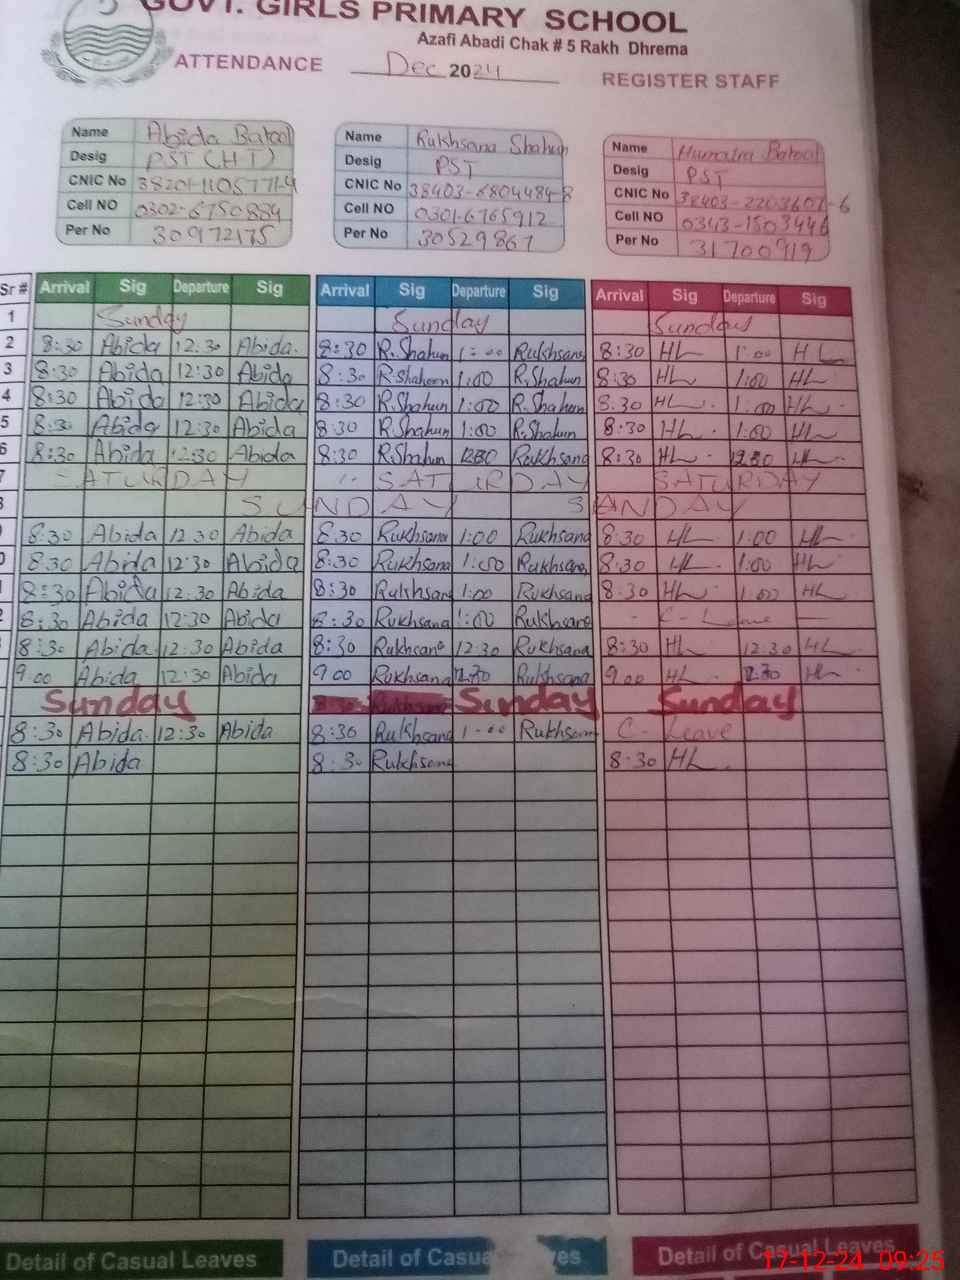 GOVT. GIRLS PRIMARY SCHOOL
Azafi Abadi Chak # 5 Rakh Dhrema
ATTENDANCE Dec 2024 REGISTER STAFF
Name Abida Batool Name Rukhsana Shahun Name Humaira Batool
Desig PST (HT) Desig PST Desig PST
CNIC No 38201-1105771-4 CNIC No 38403-6804484-8 CNIC No 38403-2203607-6
Cell NO 0302-6750884 Cell NO 0301-6765912 Cell NO 0343-1503446
Per No 30972175 Per No 30529861 Per No 31700919
Sr # Arrival Sig Departure Sig Arrival Sig Departure Sig Arrival Sig Departure Sig
1 Sunday Sunday Sunday
2 8:30 Abida 12:30 Abida. 8:30 R.Shahun 1:00 Rukhsana 8:30 HL 1:00 HL
3 8:30 Abida 12:30 Abida 8:30 R.Shaheen 1:00 R.Shahun 8:30 HL 1:00 HL
4 8:30 Abida 12:30 Abida 8:30 R.Shahun 1:00 R.Shahun 8:30 HL 1:00 HL
5 8:30 Abida 12:30 Abida 8:30 R.Shahun 1:00 R.Shahun 8:30 HL 1:00 HL
6 8:30 Abida 12:30 Abida 8:30 R.Shahun 12:30 Rukhsana 8:30 HL 12:30 HL
7 SATURDAY SATURDAY SATURDAY
SUNDAY SANDAY
8:30 Abida 12:30 Abida 8:30 Rukhsana 1:00 Rukhsana 8:30 HL 1:00 HL
8:30 Abida 12:30 Abida 8:30 Rukhsana 1:00 Rukhsana 8:30 HL 1:00 HL
8:30 Abida 12:30 Abida 8:30 Rukhsana 1:00 Rukhsana 8:30 HL 1:00 HL
8:30 Abida 12:30 Abida 8:30 Rukhsana 1:00 Rukhsana C-Leave
8:30 Abida 12:30 Abida 8:30 Rukhsana 12:30 Rukhsana 8:30 HL 12:30 HL
9:00 Abida 12:30 Abida 9:00 Rukhsana 12:30 Rukhsana 9:00 HL 12:30 HL
Sunday Sunday Sunday
8:30 Abida 12:30 Abida 8:30 Rukhsana 1:00 Rukhsana C-Leave
8:30 Abida 8:30 Rukhsana 8:30 HL
Detail of Casual Leaves Detail of Casua ves Detail of Casual Leaves
17-12-24 09:25